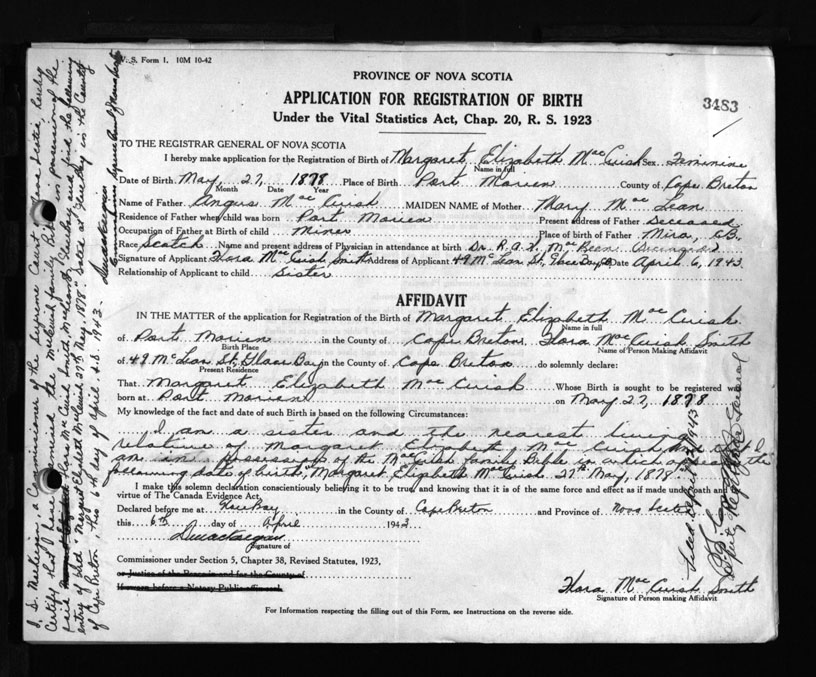 V. S. Form 1. 10M 10-42
PROVINCE OF NOVA SCOTIA
APPLICATION FOR REGISTRATION OF BIRTH
3483
Under the Vital Statistics Act, Chap. 20, R. S. 1923
TO THE REGISTRAR GENERAL OF NOVA SCOTIA
I hereby make application for the Registration of Birth of Margaret Elizabeth MacCuish Sex Feminine
Name in full
Date of Birth May, 27, 1878 Place of Birth Port Morien County of Cape Breton
Month Date Year
Name of Father Angus MacCuish MAIDEN NAME of Mother Mary McLean
Residence of Father when child was born Port Morien Present address of Father Deceased
Occupation of Father at Birth of child Miner Place of birth of Father Mira, C.B.
Race Scotch Name and present address of Physician in attendance at birth Dr. R.A.
Signature of Applicant Flora MacCuish Smith Address of Applicant 49 McLean St, Glace Bay Date April 6, 1943
Relationship of Applicant to child Sister
AFFIDAVIT
IN THE MATTER of the application for Registration of the Birth of Margaret Elizabeth MacCuish
Name in full
of Port Morien in the County of Cape Breton Flora MacCuish Smith
Birth Place Name of Person Making Affidavit
of 49 McLean St, Glace Bay in the County of Cape Breton do solemnly declare:
Present Residence
That Margaret Elizabeth MacCuish Whose Birth is sought to be registered was
born at Port Morien on May 27, 1878
My knowledge of the fact and date of such Birth is based on the following Circumstances:
I am a sister and the nearest living
relative of Margaret Elizabeth MacCuish and I
am in possession of the MacCuish family Bible in which is the
following date of birth, "Margaret Elizabeth MacCuish 27th May, 1878."
I make this solemn declaration conscientiously believing it to be true, and knowing that it is of the same force and effect as if made under oath and by
virtue of The Canada Evidence Act.
Declared before me at Glace Bay in the County of Cape Breton and Province of Nova Scotia
this 6th day of April 1943
Signature of
Commissioner under Section 5, Chapter 38, Revised Statutes, 1923,
or Justice of the Peace in and for the County of
If sworn before a Notary Public affix seal.
Flora MacCuish Smith
Signature of Person making Affidavit
For Information respecting the filling out of this Form, see Instructions on the reverse side.
a Commissioner of the Supreme Court of Nova Scotia, hereby
certify that I have examined the McCuish family Bible in possession of the
said Flora McCuish Smith, McLean St, Glace Bay and find the following
entry of birth "Margaret Elizabeth McCuish 27th May, 1878". Dated at Glace Bay in the County
of Cape Breton, this 6th day of April A.D. 1943.